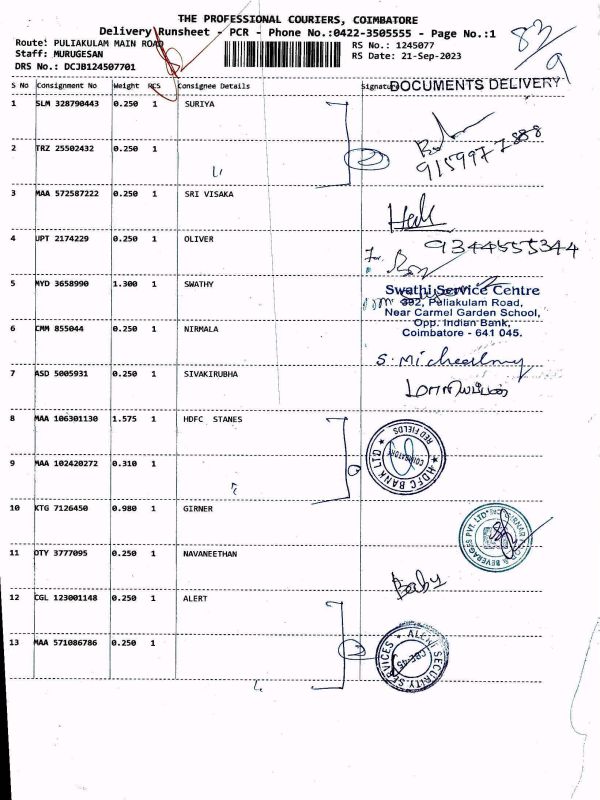 THE PROFESSIONAL COURIERS, COIMBATORE
Delivery Runsheet - PCR - Phone No.:0422-3505555 - Page No.:1
Route: PULIAKULAM MAIN ROAD
RS No.: 1245077
Staff: MURUGESAN
RS Date: 21-Sep-2023
DRS No.: DCJB124507701
83/9
DOCUMENTS DELIVERY
S No Consignment No Weight PCS Consignee Details Signature
1 SLM 328790443 0.250 1 SURIYA
2 TRZ 25502432 0.250 1
2
3 MAA 572587222 0.250 1 SRI VISAKA
4 JPT 2174229 0.250 1 OLIVER
9344555344
5 MYD 3658990 1.300 1 SWATHY
Swathi Service Centre
392, Puliakulam Road,
Near Carmel Garden School,
Opp. Indian Bank,
Coimbatore - 641 045.
6 CMM 855044 0.250 1 NIRMALA
7 ASD 5005931 0.250 1 SIVAKIRUBHA
8 MAA 106301130 1.575 1 HDFC STANES
HDFC BANK LTD
RED FIELDS
COIMBATORE
9 MAA 102420272 0.310 1
10 KTG 7126450 0.980 1 GIRNER
BEVERAGES PVT. LTD
11 OTY 3777095 0.250 1 NAVANEETHAN
Baby
12 CGL 123001148 0.250 1 ALERT
13 MAA 571086786 0.250 1
2
ALERT SECURITY SERVICES
CBE-45